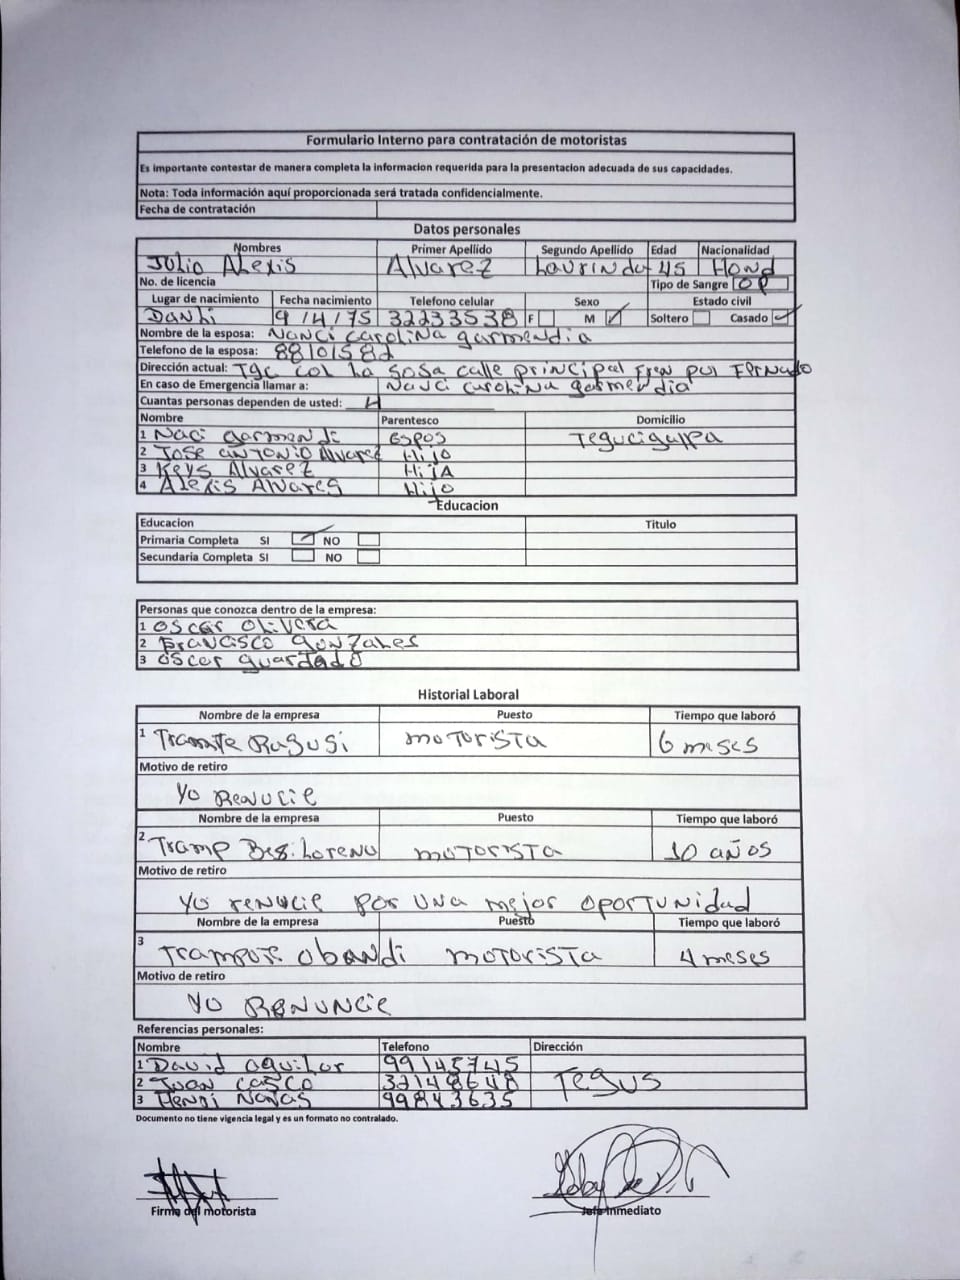 Formulario Interno para contratación de motoristas
Es importante contestar de manera completa la informacion requerida para la presentacion adecuada de sus capacidades.
Nota: Toda información aquí proporcionada será tratada confidencialmente.
Fecha de contratación
Datos personales
Nombres Primer Apellido Segundo Apellido Edad Nacionalidad
Julio Alexis Alvarez 45 Hond
No. de licencia Tipo de Sangre
Lugar de nacimiento Fecha nacimiento Telefono celular Sexo Estado civil
Danli 9/4/75 32233538 F M Soltero Casado
Nombre de la esposa: Nanci carolina garmendia
Telefono de la esposa: 88101582
Dirección actual: Tgc col la sosa calle principal
En caso de Emergencia llamar a: Nanci carolina garmendia
Cuantas personas dependen de usted: 4
Nombre Parentesco Domicilio
1 Naci garmendi espos Tegucigalpa
2 Jose antonio Alvarez Hijo
3 Keys Alvarez HijA
4 Alexis Alvares Hijo
Educacion
Educacion Titulo
Primaria Completa SI NO
Secundaria Completa SI NO
Personas que conozca dentro de la empresa:
1 oscar olivera
2 Francisco gonzales
3 oscer guardado
Historial Laboral
Nombre de la empresa Puesto Tiempo que laboró
1 motorista 6 meses
Motivo de retiro
Yo Renucie
Nombre de la empresa Puesto Tiempo que laboró
2 Tramp motorista 10 años
Motivo de retiro
Yo renucie por una mejor oportunidad
Nombre de la empresa Puesto Tiempo que laboró
3 obandi motorista 4 meses
Motivo de retiro
Yo Renuncie
Referencias personales:
Nombre Telefono Dirección
1 David aguilar 99145745
2 Juan casco 32148648 Tegus
3 Henri Navas 99843635
Documento no tiene vigencia legal y es un formato no contralado.
Firma del motorista Jefe Inmediato